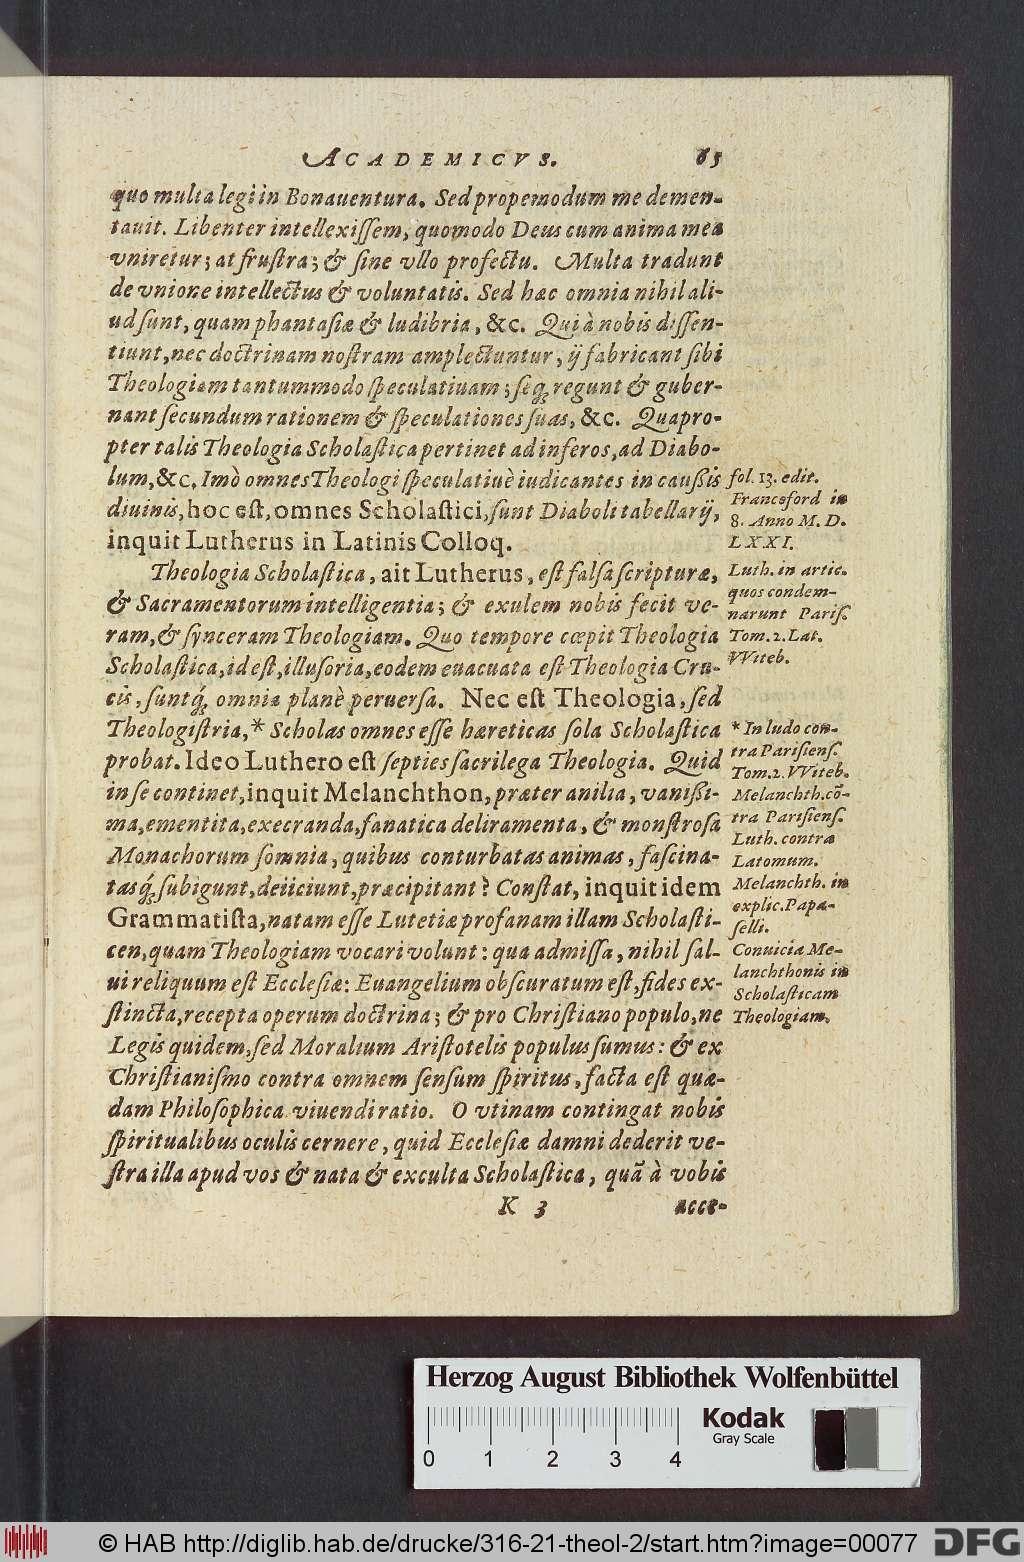 ACADEMICVS. 65
quo multa legi in Bonauentura. Sed propemodum me demen-
tauit. Libenter intellexiſſem, quomodo Deus cum anima mea
vniretur; at fruſtra; & ſine vllo profectu. Multa tradunt
de vnione intellectus & voluntatis. Sed hæc omnia nihil ali-
ud ſunt, quam phantaſiæ & ludibria, &c. Qui à nobis diſſen-
tiunt, nec doctrinam noſtram amplectuntur, ij fabricant ſibi
Theologiam tantummodo ſpeculatiuam; ſeq́; regunt & guber-
nant ſecundum rationem & ſpeculationes ſuas, &c. Quapro-
pter talis Theologia Scholaſtica pertinet ad inferos, ad Diabo-
lum, &c. Imò omnes Theologi ſpeculatiuè iudicantes in cauſſis
diuinis, hoc eſt, omnes Scholaſtici, ſunt Diaboli tabellarij,
inquit Lutherus in Latinis Colloq.
fol. 13. edit.
Francoford in
8. Anno M. D.
LXXI.
Theologia Scholaſtica, ait Lutherus, eſt falſa ſcripturæ,
& Sacramentorum intelligentia; & exulem nobis fecit ve-
ram, & ſynceram Theologiam. Quo tempore cœpit Theologia
Scholaſtica, id eſt, illuſoria, eodem euacuata eſt Theologia Cru-
cis, ſuntq́; omnia planè peruerſa. Nec eſt Theologia, ſed
Luth. in artic.
quos condem-
narunt Pariſ.
Tom. 2. Lat.
VViteb.
Theologiſtria, * Scholas omnes eſſe hæreticas ſola Scholaſtica
probat. Ideo Luthero eſt ſepties ſacrilega Theologia. Quid
in ſe continet, inquit Melanchthon, præter anilia, vaniſſi-
ma, ementita, execranda, fanatica deliramenta, & monſtroſa
Monachorum ſomnia, quibus conturbatas animas, faſcina-
tasq́; ſubigunt, deiiciunt, præcipitant? Conſtat, inquit idem
Grammatiſta, natam eſſe Lutetiæ profanam illam Scholaſti-
cen, quam Theologiam vocari volunt: qua admiſſa, nihil ſal-
ui reliquum eſt Eccleſiæ: Euangelium obſcuratum eſt, fides ex-
ſtincta, recepta operum doctrina; & pro Chriſtiano populo, ne
Legis quidem, ſed Moralium Ariſtotelis populus ſumus: & ex
Chriſtianiſmo contra omnem ſenſum ſpiritus, facta eſt quæ-
dam Philoſophica viuendi ratio. O vtinam contingat nobis
ſpiritualibus oculis cernere, quid Eccleſiæ damni dederit ve-
ſtra illa apud vos & nata & exculta Scholaſtica, quã à vobis
* In ludo con-
tra Pariſienſ.
Tom. 2. VViteb.
Melanchth. cõ-
tra Pariſienſ.
Luth. contra
Latomum.
Melanchth. in
explic. Papæ-
ſelli.
Conuicia Me-
lanchthonis in
Scholaſticam
Theologiam.
K 3 acce-
Herzog August Bibliothek Wolfenbüttel
Kodak
Gray Scale
0 1 2 3 4
© HAB http://diglib.hab.de/drucke/316-21-theol-2/start.htm?image=00077
DFG